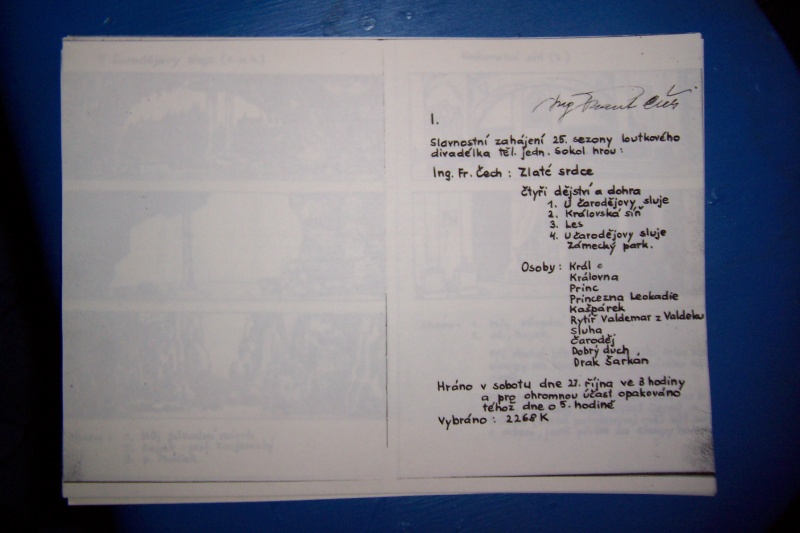 I.
Slavnostní zahájení 25. sezony loutkového
divadélka těl. jedn. Sokol hrou:
Ing. Fr. Čech: Zlaté srdce
čtyři dějství a dohra
1. U čarodějovy sluje
2. Královská síň
3. Les
4. U čarodějovy sluje
Zámecký park.
Osoby: Král
Královna
Princ
Princezna Leokadie
Kašpárek
Rytíř Valdemar z Valdeku
Sluha
Čaroděj
Dobrý duch
Drak Šarkán
Hráno v sobotu dne 27. října ve 3 hodiny
a pro ohromnou účast opakováno
téhož dne o 5. hodině
Vybráno: 2268 K